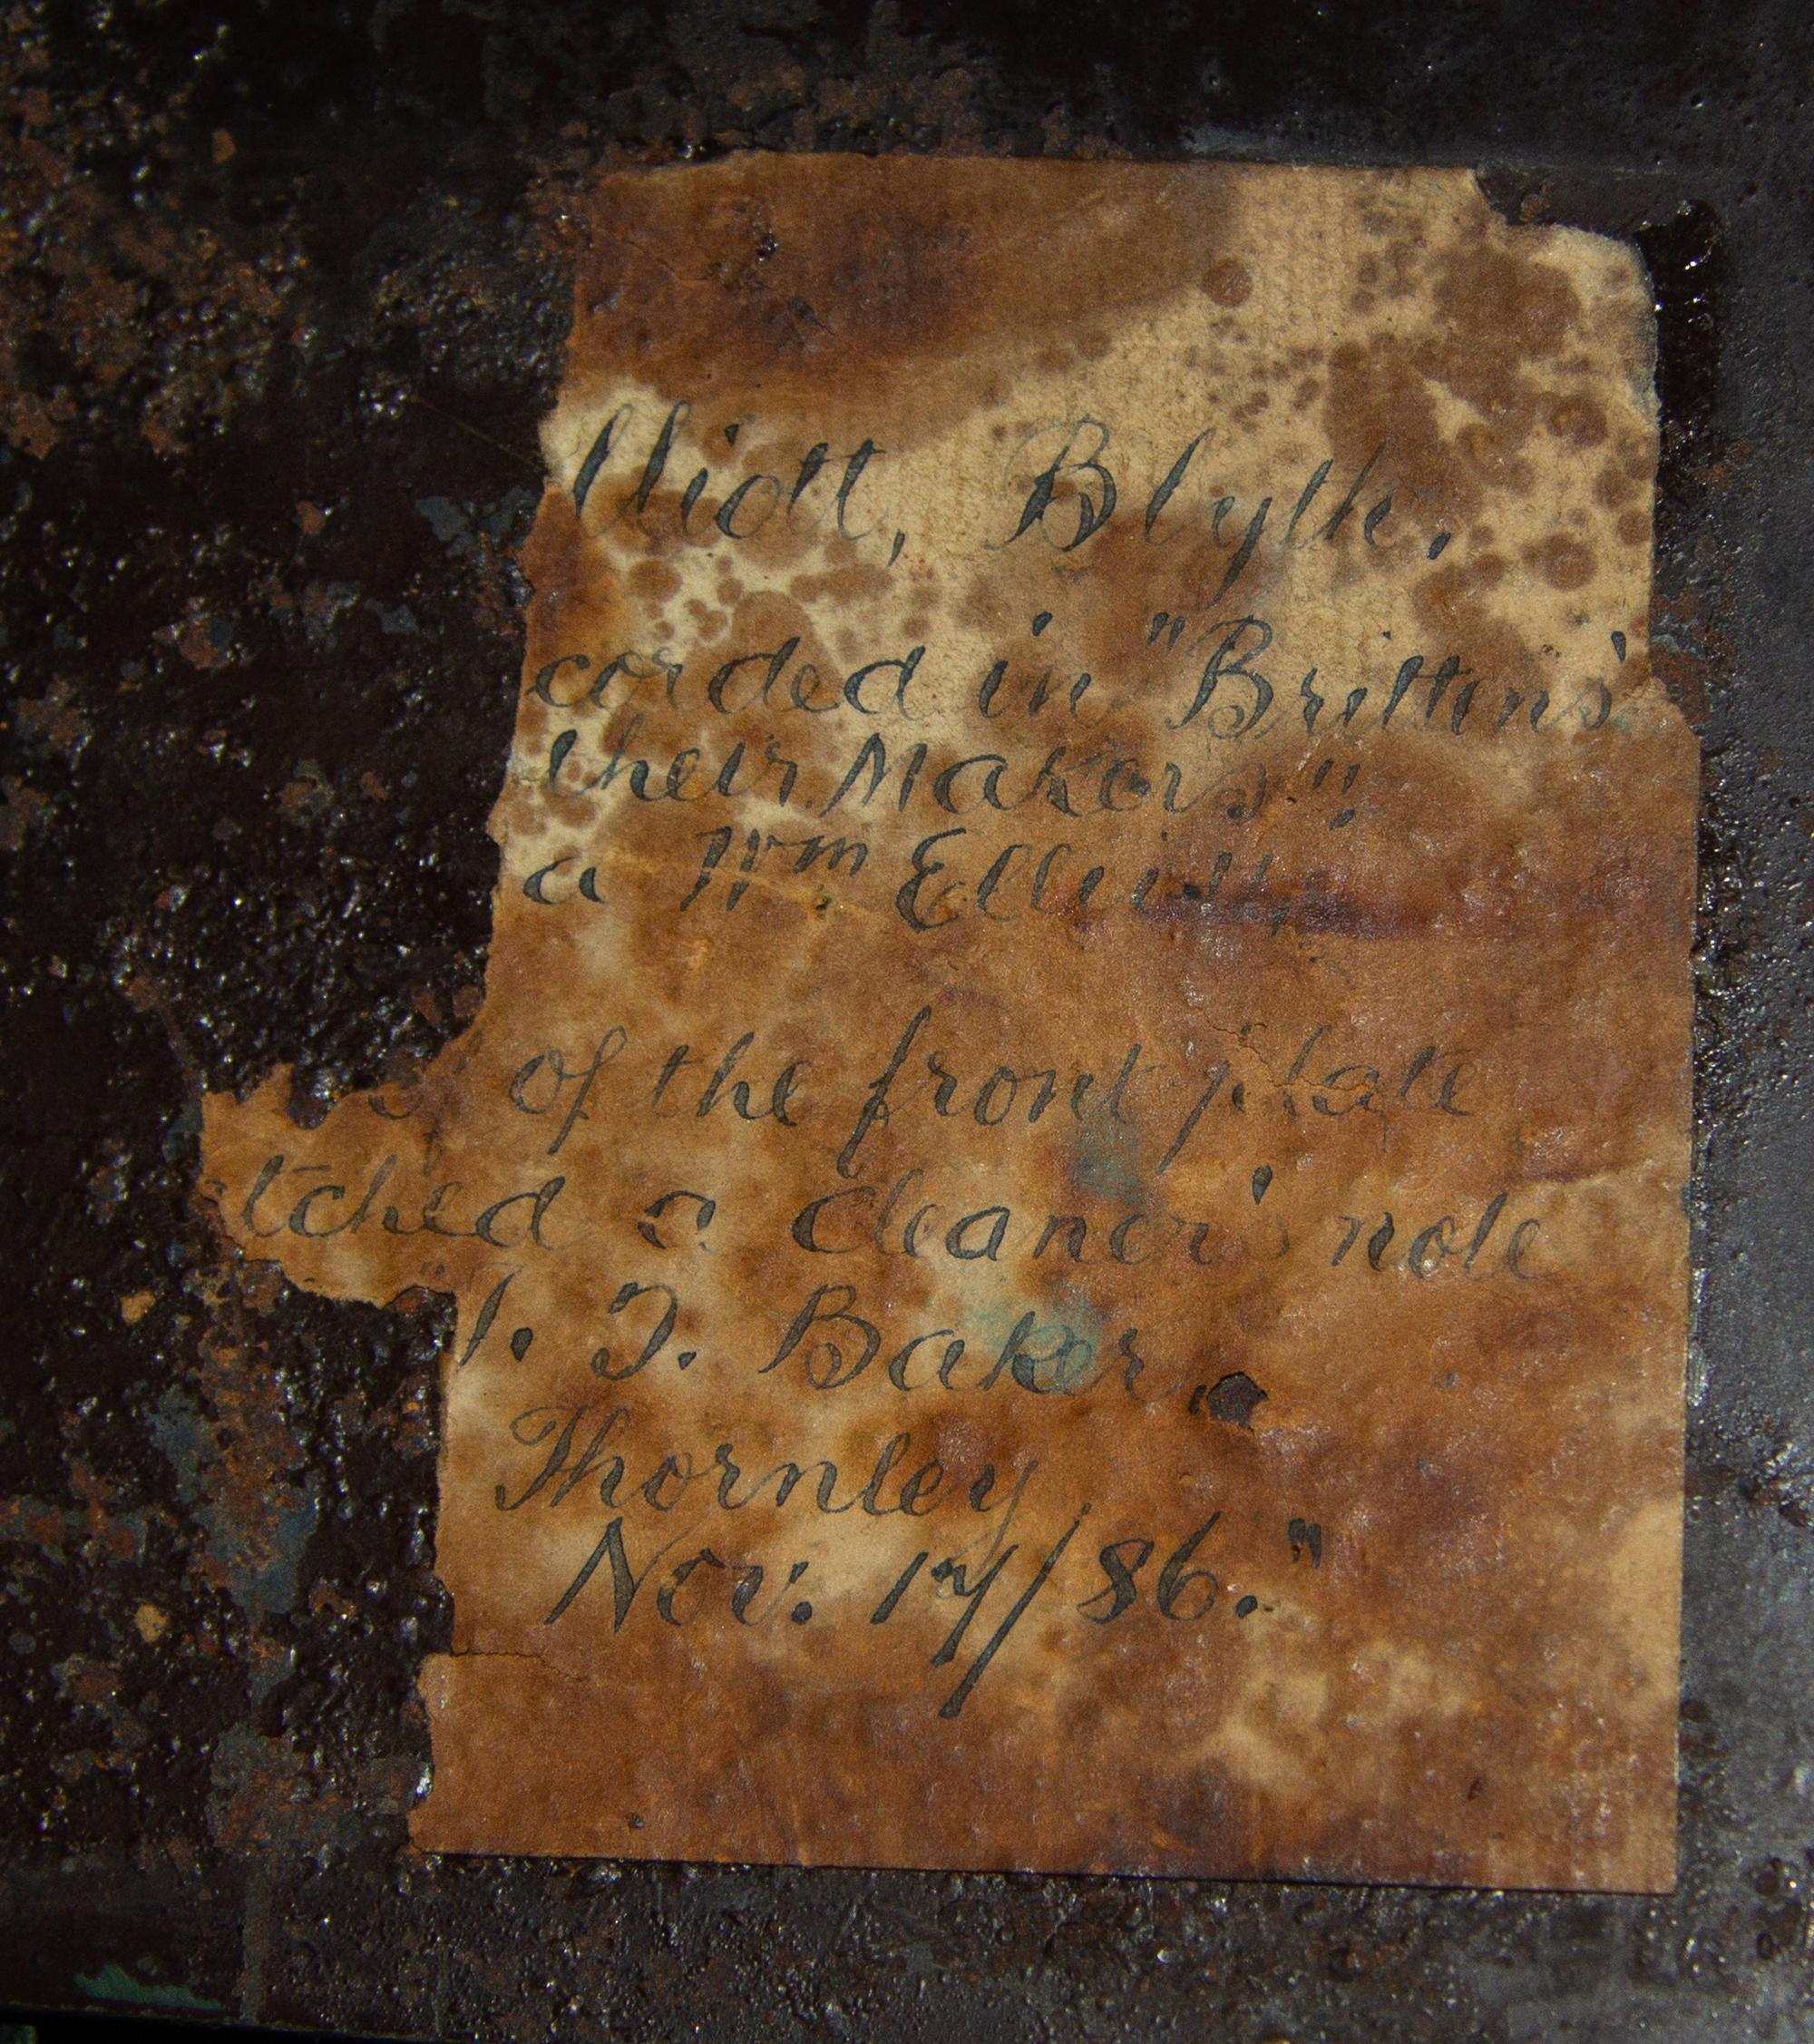 lliott, Blyth.
corded in "Brittens'
their Makers".
a Wm Elliott,
of the front plate
tched a cleaner's note
T. Baker,
Thornley
Nov. 17/86."